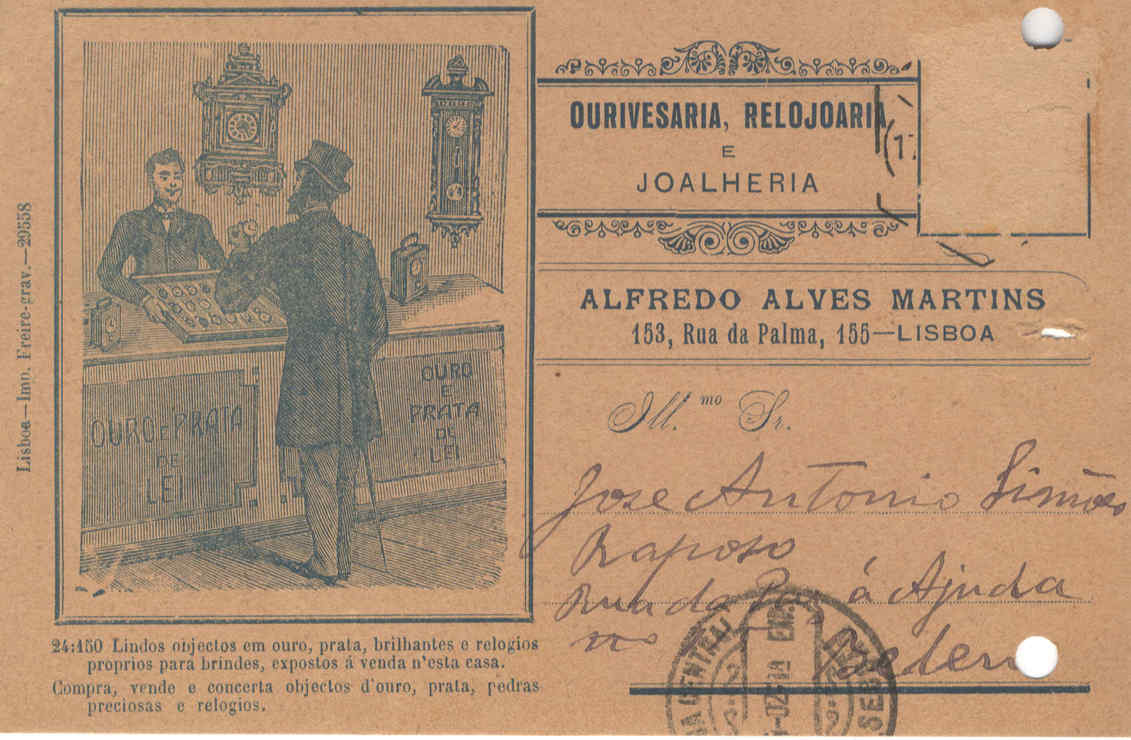 Lisboa—Imp. Freire-grav.—29558
OURO E PRATA
DE
LEI
OURO
E
PRATA
DE
LEI
24:150 Lindos objectos em ouro, prata, brilhantes e relogios
proprios para brindes, expostos á venda n'esta casa.
Compra, vende e concerta objectos d'ouro, prata, pedras
preciosas e relogios.
OURIVESARIA, RELOJOARIA
E
JOALHERIA
ALFREDO ALVES MARTINS
153, Rua da Palma, 155—LISBOA
Ill.mo Sr.
Jose Antonio Simões
Raposo
Rua da Paz á Ajuda
no
Belem